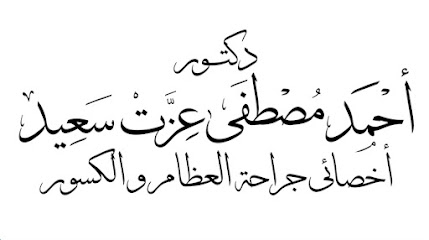 دكتور
أَحْمَد مُصْطَفَى عِزَّتْ سَعِيد
أخصائى جراحة العظام والكسور